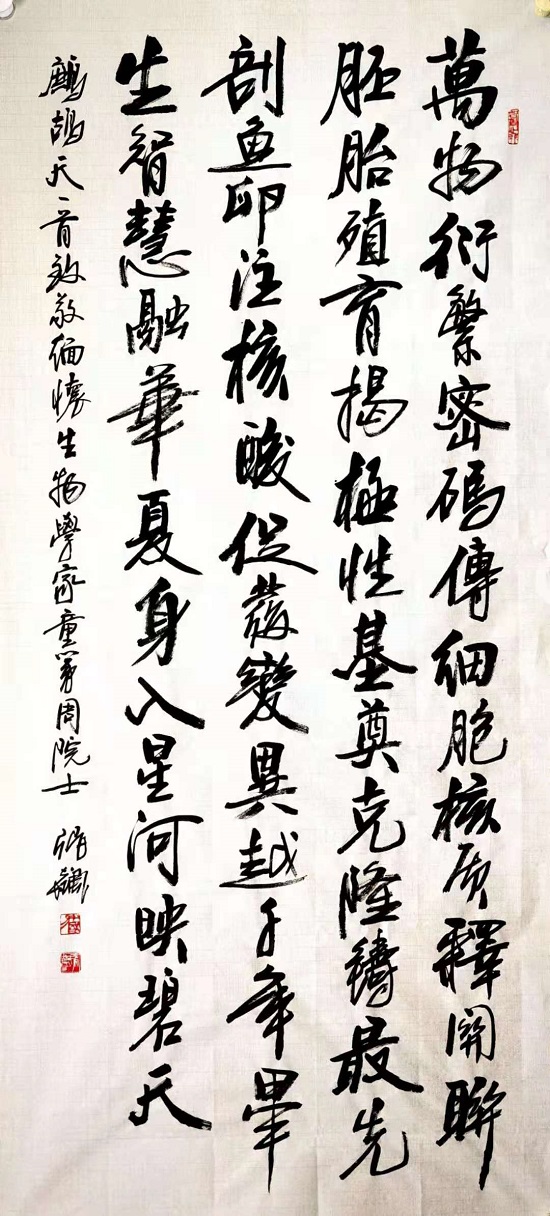 萬物衍繁密碼傳細胞核质釋関聯
胚胎殖育揭極性基奠克隆鑄最先
剖魚卵注核酸促發變異越千年畢
生智慧融華夏身入星河映碧天
鷓鴣天一首致敬緬懷生物學家童第周院士